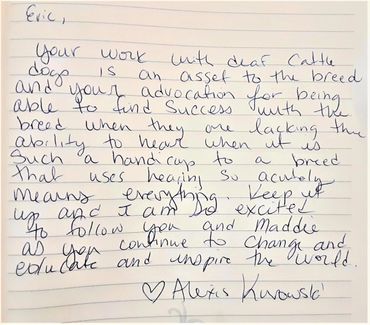 Eric,
Your work with deaf Cattle
dogs is an asset to the breed
and your advocation for being
able to find Success with the
breed when they are lacking the
ability to hear when it is
Such a handicap to a breed
that uses hearing so acutely
means everything. Keep it
up and I am so excited
to follow you and Maddie
as you continue to change and
educate and inspire the world.
♡ Alexis Kurowski